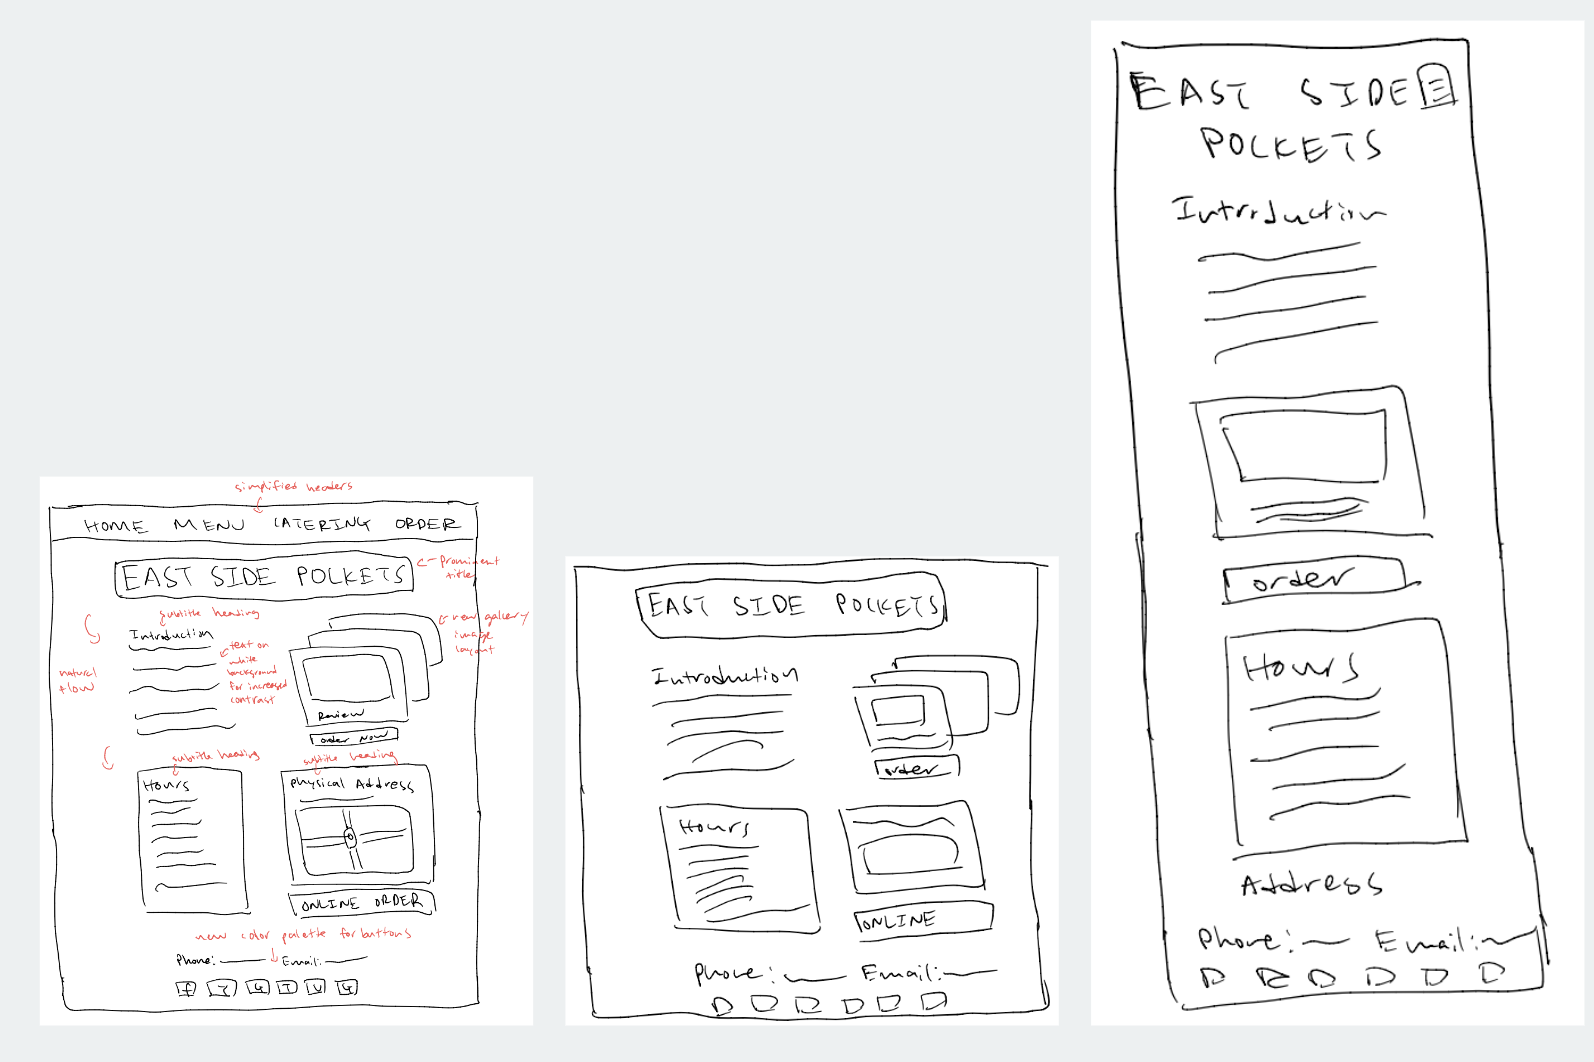 simplified headers
HOME MENU CATERING ORDER
EAST SIDE POCKETS
prominent
title
subtitle heading
Introduction
text on
white
background
for increased
contrast
natural
flow
new gallery
image
layout
Review
order now
subtitle heading
subtitle heading
Hours
Physical Address
ONLINE ORDER
new color palette for buttons
Phone: Email:
EAST SIDE POCKETS
Introduction
order
Hours
ONLINE
Phone: Email:
EAST SIDE
POCKETS
Introduction
order
Hours
Address
Phone: Email: